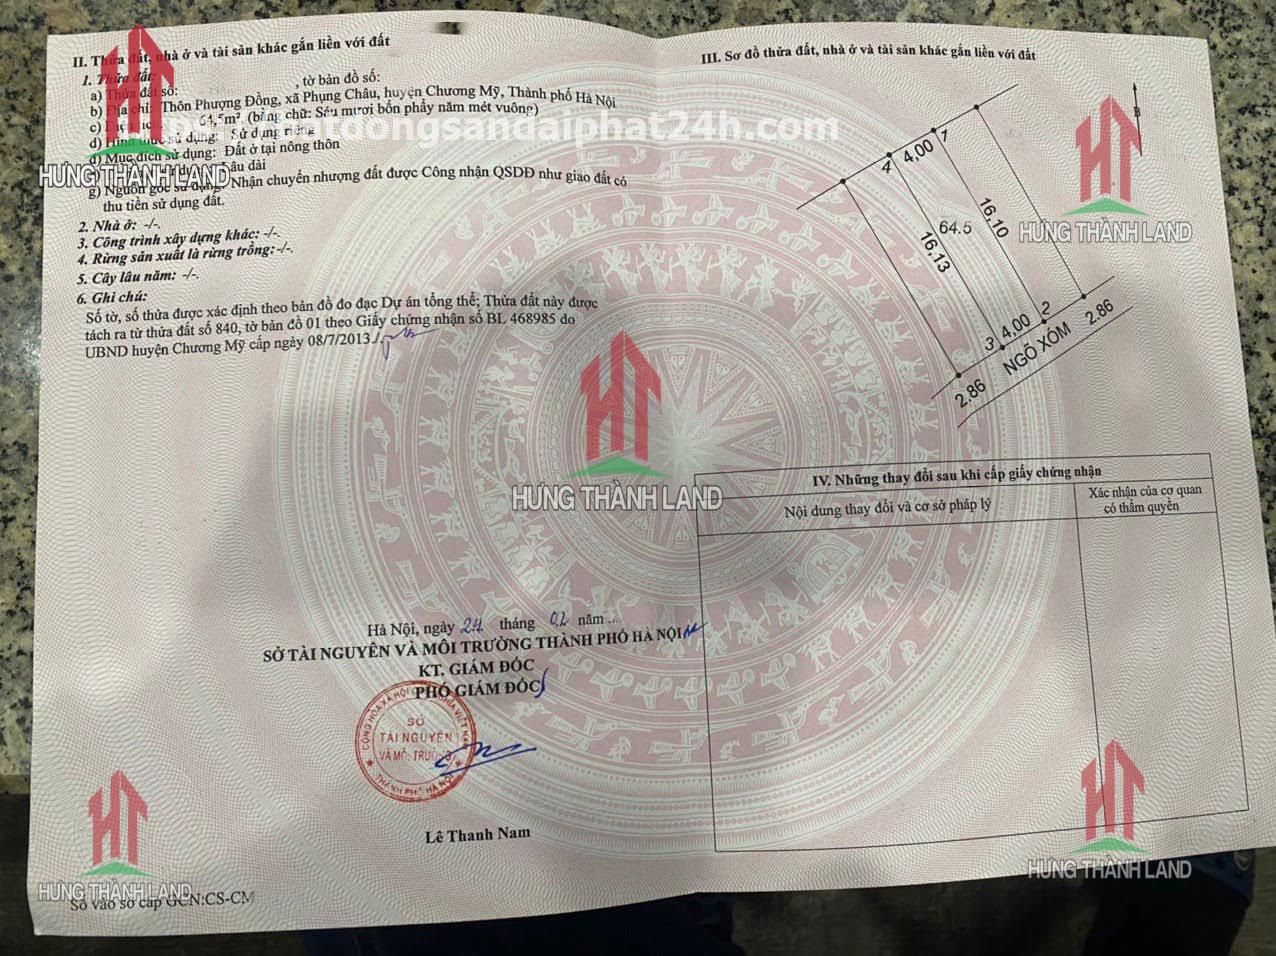 II. Thửa đất, nhà ở và tài sản khác gắn liền với đất
1. Thửa đất:
a) Thửa đất số: , tờ bản đồ số:
b) Địa chỉ: Thôn Phượng Đồng, xã Phụng Châu, huyện Chương Mỹ, Thành phố Hà Nội
c) 64,5m², (bằng chữ: Sáu mươi bốn phẩy năm mét vuông)
d) Hình thức sử dụng: Sử dụng riêng
đ) Mục đích sử dụng: Đất ở tại nông thôn
lâu dài
g) Nguồn gốc sử dụng: Nhận chuyển nhượng đất được Công nhận QSDĐ như giao đất có
thu tiền sử dụng đất.
2. Nhà ở: -/-.
3. Công trình xây dựng khác: -/-.
4. Rừng sản xuất là rừng trồng:-/-.
5. Cây lâu năm: -/-.
6. Ghi chú:
Số tờ, số thửa được xác định theo bản đồ đo đạc Dự án tổng thể; Thửa đất này được
tách ra từ thửa đất số 840, tờ bản đồ 01 theo Giấy chứng nhận số BL 468985 do
UBND huyện Chương Mỹ cấp ngày 08/7/2013./.
Hà Nội, ngày 24 tháng 02 năm ...
SỞ TÀI NGUYÊN VÀ MÔI TRƯỜNG THÀNH PHỐ HÀ NỘI
KT. GIÁM ĐỐC
PHÓ GIÁM ĐỐC
SỞ
TÀI NGUYÊN
VÀ MÔI TRƯỜNG
THÀNH PHỐ HÀ NỘI
Lê Thanh Nam
Số vào sổ cấp GCN:CS-CM
III. Sơ đồ thửa đất, nhà ở và tài sản khác gắn liền với đất
B
4 4,00 1
64.5
16,10
16,13
3 4,00 2
2.86 NGÕ XÓM 2.86
IV. Những thay đổi sau khi cấp giấy chứng nhận
Nội dung thay đổi và cơ sở pháp lý
Xác nhận của cơ quan
có thẩm quyền
HƯNG THÀNH LAND
HƯNG THÀNH LAND
HƯNG THÀNH LAND
HƯNG THÀNH LAND
HƯNG THÀNH LAND